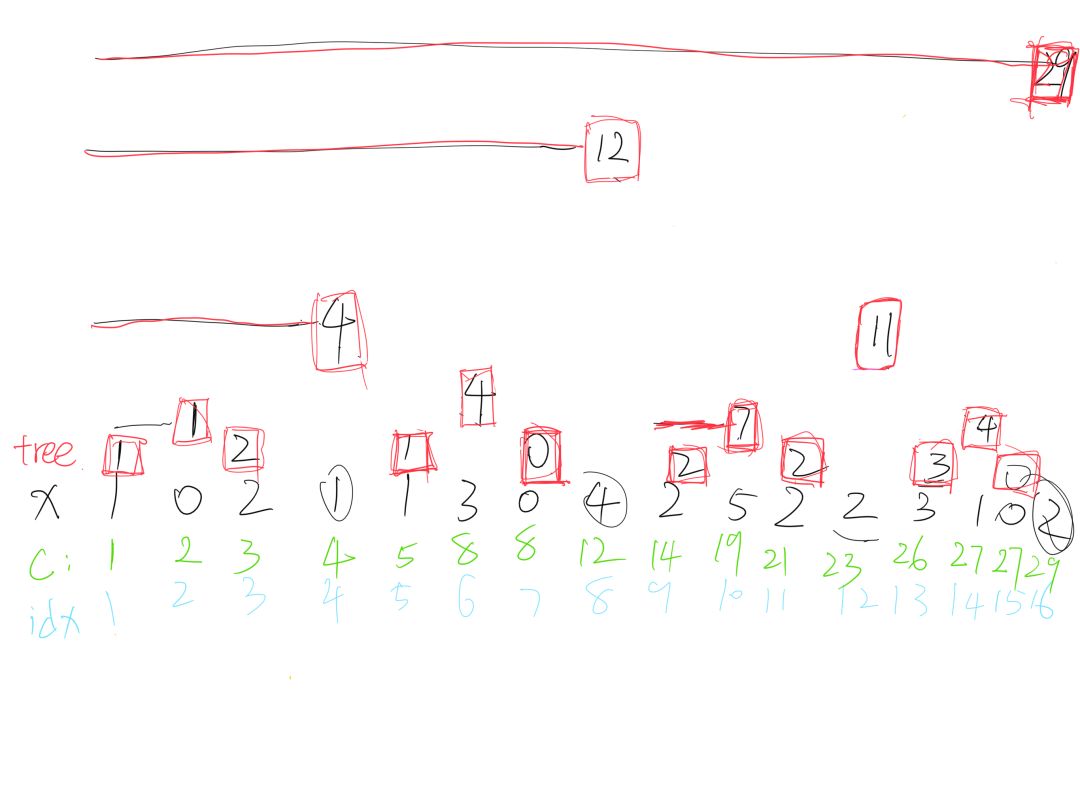 29
12
4 11
4
1 1 7 4
tree 1 2 1 0 2 2 3 0
x 1 0 2 1 1 3 0 4 2 5 2 2 3 1 0 2
C: 1 2 3 4 5 8 8 12 14 19 21 23 26 27 27 29
idx 1 2 3 4 5 6 7 8 9 10 11 12 13 14 15 16